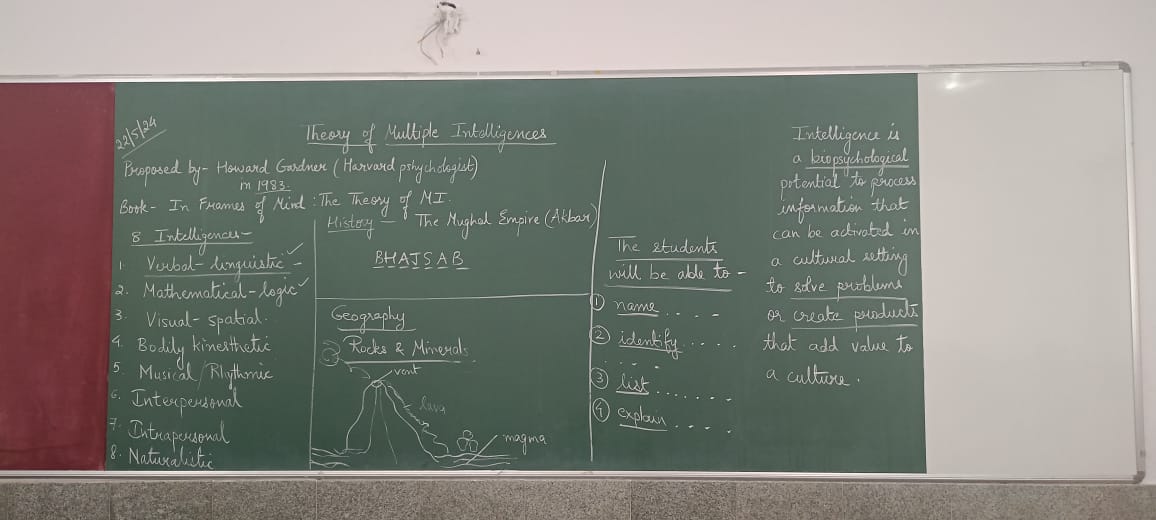 22/5/24
Theory of Multiple Intelligences
Proposed by- Howard Gardner (Harvard pshychologist)
in 1983.
Book- In Frames of Mind : The Theory of MI.
8 Intelligences-
1. Verbal-linguistic - ✓
2. Mathematical-logic ✓
3. Visual-spatial.
4. Bodily kinesthetic
5. Musical/Rhythmic
6. Interpersonal
7. Intrapersonal
8. Naturalistic
History - The Mughal Empire (Akbar)
BHAJSAB
Geography
Rocks & Minerals
vent
lava
magma
The students
will be able to -
① name . . . .
② identify . . . . .
. . .
③ list . . . . . . .
④ explain . . . .
Intelligence is
a biopsychological
potential to process
information that
can be activated in
a cultural setting
to solve problems
or create products
that add value to
a culture.